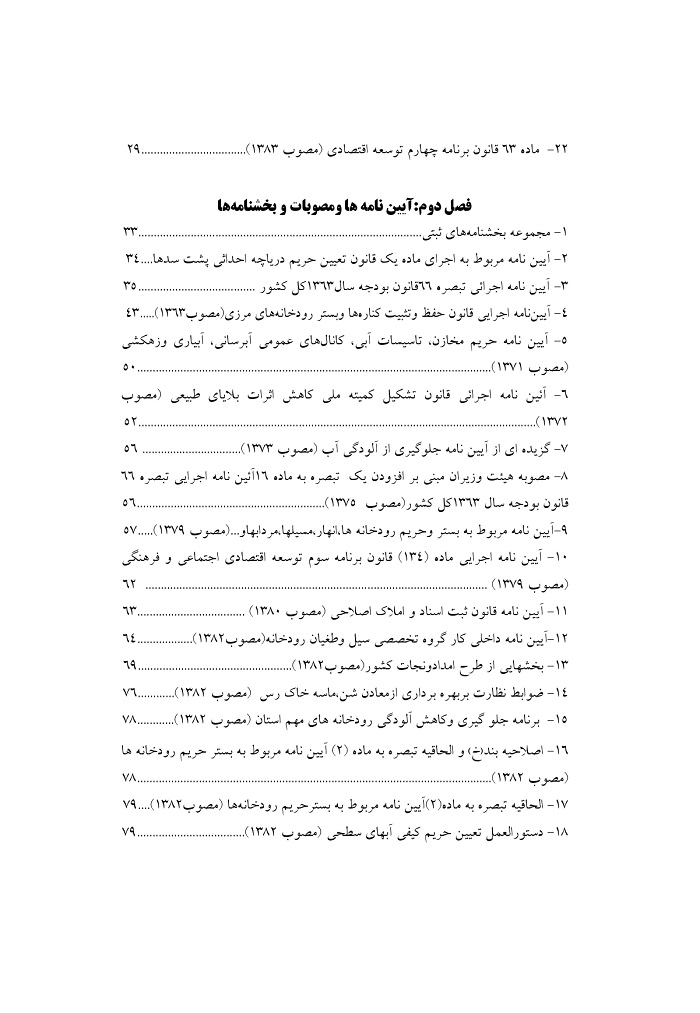 ۲۲- ماده ۶۳ قانون برنامه چهارم توسعه اقتصادی (مصوب ۱۳۸۳).................................۲۹
فصل دوم:آیین نامه ها ومصوبات و بخشنامه‌ها
۱- مجموعه بخشنامه‌های ثبتی...........................................................................................۳۳
۲- آیین نامه مربوط به اجرای ماده یک قانون تعیین حریم دریاچه احداثی پشت سدها....۳۴
۳- آیین نامه اجرائی تبصره ۶۶قانون بودجه سال۱۳۶۳کل کشور .....................................۳۵
۴- آیین‌نامه اجرایی قانون حفظ وتثبیت کناره‌ها وبستر رودخانه‌های مرزی(مصوب۱۳۶۳).....۴۳
۵- آیین نامه حریم مخازن، تاسیسات آبی، کانال‌های عمومی آبرسانی، آبیاری وزهکشی
(مصوب ۱۳۷۱)..................................................................................................................۵۰
۶- آئین نامه اجرائی قانون تشکیل کمیته ملی کاهش اثرات بلایای طبیعی (مصوب
۱۳۷۲)................................................................................................................................۵۲
۷- گزیده ای از آیین نامه جلوگیری از آلودگی آب (مصوب ۱۳۷۳)................................ ۵۶
۸- مصوبه هیئت وزیران مبنی بر افزودن یک تبصره به ماده ۱۶آئین نامه اجرایی تبصره ۶۶
قانون بودجه سال ۱۳۶۳کل کشور(مصوب ۱۳۷۵)............................................................۵۶
۹-آیین نامه مربوط به بستر وحریم رودخانه ها،انهار،مسیلها،مردابهاو...(مصوب ۱۳۷۹).....۵۷
۱۰- آیین نامه اجرایی ماده (۱۳۴) قانون برنامه سوم توسعه اقتصادی اجتماعی و فرهنگی
(مصوب ۱۳۷۹) .............................................................................................................. ۶۲
۱۱- آیین نامه قانون ثبت اسناد و املاک اصلاحی (مصوب ۱۳۸۰) ..................................۶۳
۱۲-آیین نامه داخلی کار گروه تخصصی سیل وطغیان رودخانه(مصوب۱۳۸۲)..................۶۴
۱۳- بخشهایی از طرح امدادونجات کشور(مصوب۱۳۸۲)..................................................۶۹
۱۴- ضوابط نظارت بربهره برداری ازمعادن شن،ماسه خاک رس (مصوب ۱۳۸۲)............۷۶
۱۵- برنامه جلو گیری وکاهش آلودگی رودخانه های مهم استان (مصوب ۱۳۸۲)............۷۸
۱۶- اصلاحیه بند(خ) و الحاقیه تبصره به ماده (۲) آیین نامه مربوط به بستر حریم رودخانه ها
(مصوب ۱۳۸۲)..................................................................................................................۷۸
۱۷- الحاقیه تبصره به ماده(۲)آیین نامه مربوط به بسترحریم رودخانه‌ها (مصوب۱۳۸۲)....۷۹
۱۸- دستورالعمل تعیین حریم کیفی آبهای سطحی (مصوب ۱۳۸۲)...................................۷۹